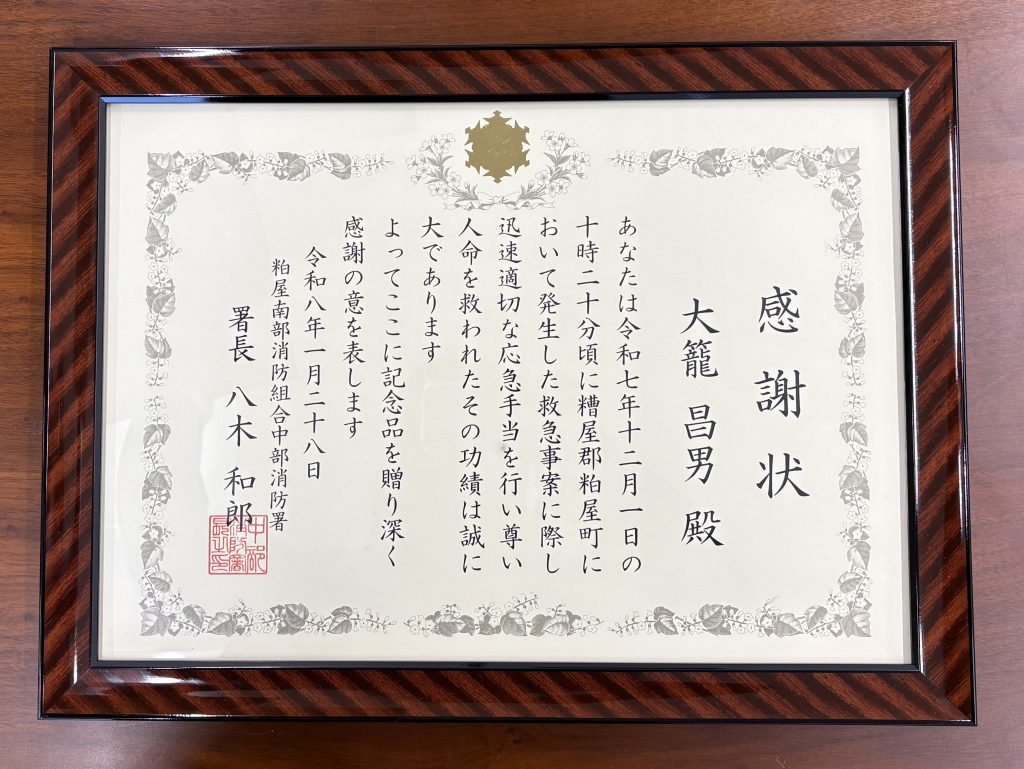 感謝状
大籠 昌男 殿
あなたは令和七年十二月一日の
十時二十分頃に糟屋郡粕屋町に
おいて発生した救急事案に際し
迅速適切な応急手当を行い尊い
人命を救われたその功績は誠に
大であります
よってここに記念品を贈り深く
感謝の意を表します
令和八年一月二十八日
粕屋南部消防組合中部消防署
署長 八木 和郎
中部
消防署
長之印